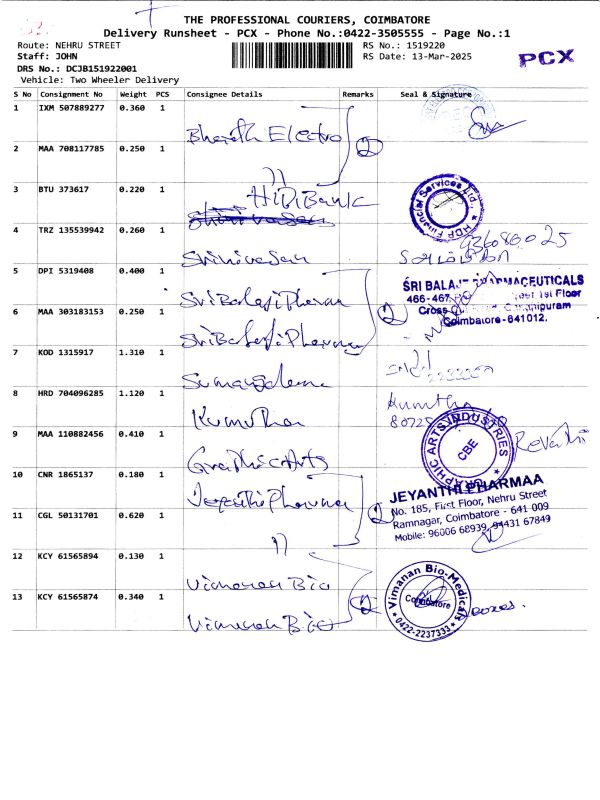 THE PROFESSIONAL COURIERS, COIMBATORE
Delivery Runsheet - PCX - Phone No.:0422-3505555 - Page No.:1
Route: NEHRU STREET
RS No.: 1519220
Staff: JOHN
RS Date: 13-Mar-2025
PCX
DRS No.: DCJB151922001
Vehicle: Two Wheeler Delivery
S No Consignment No Weight PCS Consignee Details Remarks Seal & Signature
1 IXM 507889277 0.360 1
Bharath Electro
2
2 MAA 708117785 0.250 1
))
3 BTU 373617 0.220 1
HDB Bank
HDF Financial Services Ltd.
4 TRZ 135539942 0.260 1
Srinivasan
5 DPI 5319408 0.400 1
Sri Balaji Pharma
2
SRI BALAJI PHARMACEUTICALS
466-467,
1st Floor
Cross
Coimbatore-641012.
6 MAA 303183153 0.250 1
Sri Balaji Pharma
7 KOD 1315917 1.310 1
8 HRD 704096285 1.120 1
Kumutha
Kumutha
9 MAA 110882456 0.410 1
Graphic Arts
GRAPHIC ARTS INDUSTRIES
CBE
Revathi
10 CNR 1865137 0.180 1
Jeyanthi Pharma
2
JEYANTHI PHARMAA
No. 185, First Floor, Nehru Street
Ramnagar, Coimbatore - 641 009
Mobile: 96006 68939, 94431 67849
11 CGL 50131701 0.620 1
))
12 KCY 61565894 0.130 1
Vimanan Bio
13 KCY 61565874 0.340 1
Vimanan Bio
2
Vimanan Bio-Medicals
Coimbatore
0422-2237333
2 boxes.